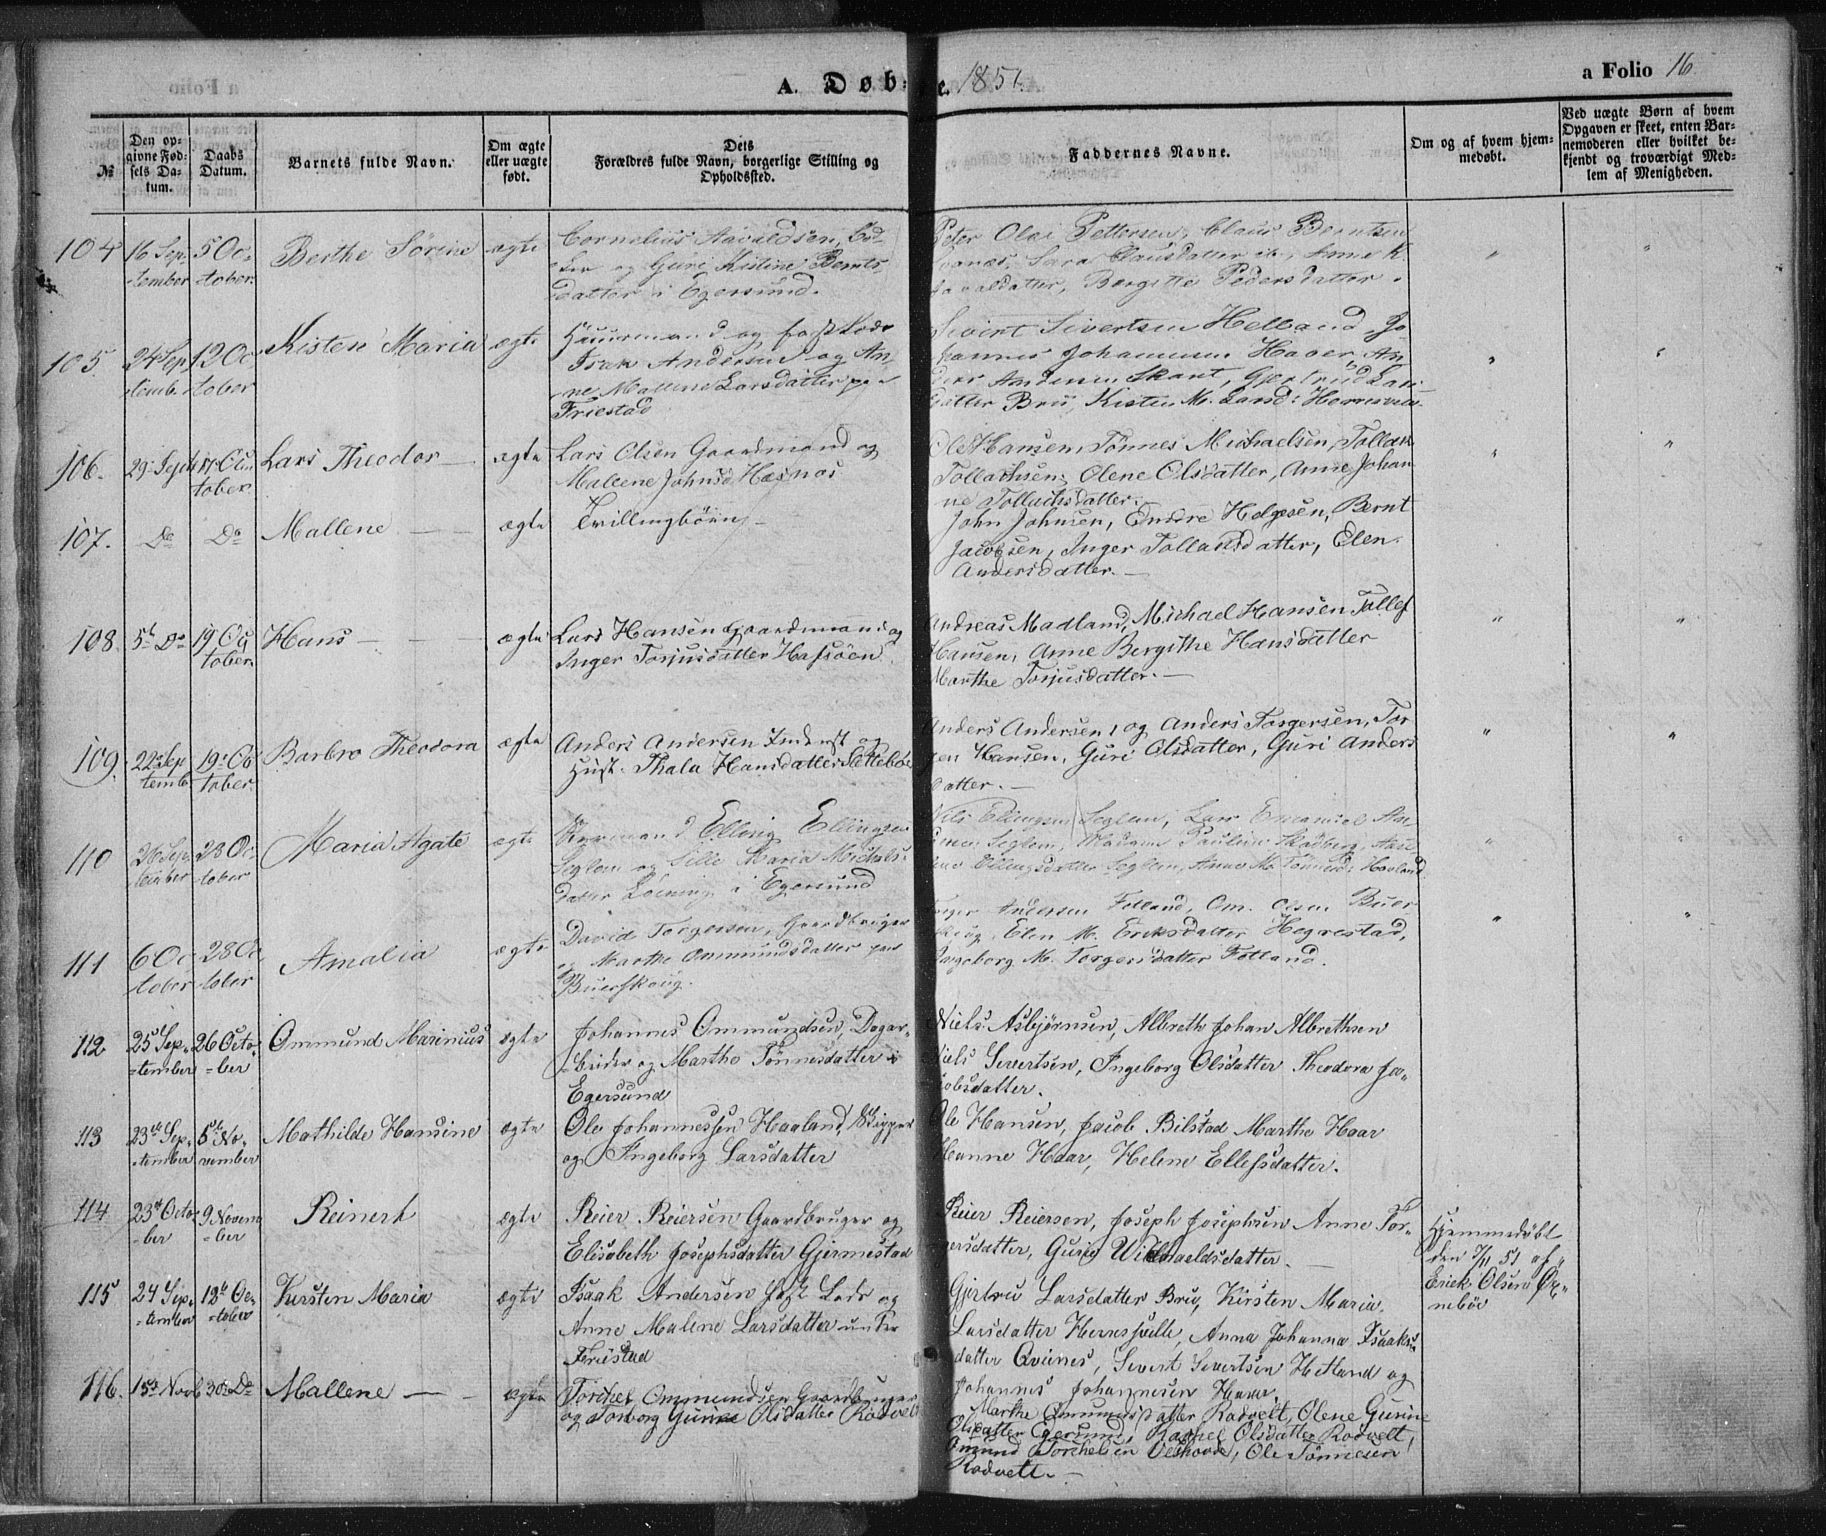 A. Døbte. 1851.
a Folio 16.
№
Den op-
givne Fød-
sels Da-
tum.
Daabs
Datum.
Barnets fulde Navn.
Om ægte
eller uægte
født.
Dets
Forældres fulde Navn, borgerlige Stilling og
Opholdssted.
Faddernes Navne.
Om og af hvem hjem-
medøbt.
Ved uægte Børn af hvem
Opgaven er skeet, enten Bar-
nemoderen eller hvilket be-
kjendt og troværdigt Med-
lem af Menigheden.
104 16 Sep- 5 Oc-
-tember -tober.
Berthe Sørine
ægte
Cornelius Aavaldsen,
og Guri Kistine Bernts
datter i Egersund.
Peter Olai Pettersen, Claus Berntsen
Sara Clausdatter Anne K.
Bergitte Pedersdatter.
105. 24 Sep 12 Oc
-temb. tober
Kisten Maria
ægte
Huusmand og fast Lods
Isak Andersen og An-
ne Mallene Larsdatter paa
Friestad
Sivert Sivertsen Helland, Jo-
hannes Johannesen Haver, An-
ders Andersen Skaut, Gjertrud Lars
datter Bru, Kisten M. Larsd:
106. 29 Sept 17 Oc
tober.
Lars Theodor —
ægte
Lars Olsen Gaardmand og
Mallene Johnsd Hæsnæs
Ole Hansen, Tönnes Michaelsen, Tollak
Tollachsen, Olene Olsdatter, Anne Johan
ne Tollachsdatter. —
107. Do Do
Mallene —
ægte
Tvillingbörn —
John Johnsen, Endre Helgesen, Bernt
Jacobsen, Inger Tollachsdatter, Elen
Andersdatter. —
108. 5t Do 19 Oc
tober.
Hans — — —
ægte
Lars Hansen Gaardmand og
Inger Torjusdatter Hafsöen
Andreas Madland, Michael Hansen Tollef
Hansen, Anne Bergithe Hansdatter
Marthe Torjusdatter. —
109. 22 Sep 19 Oc
temb. tober.
Barbro Theodora
ægte
Anders Andersen Inderst og
Hust. Thala Hansdatter Sletteböe
Anders Andersen, og Anders Torgersen, Tor
gen Hansen, Guri Olsdatter, Guri Anders
datter. —
110 26 Sep- 28 Oc
tember tober
Maria Agate
ægte
Elling Ellingsen
Seglem og Sille Maria Michels-
datter i Egersund
Nils Ellingsen Seglem, Lars Emanuel An-
dersen Seglem, Madam Pauline Skadberg,
Ellingsdatter Seglem, Anne M. Tönnesd: Hovland
111 6 Oc 28 Oc
tober tober
Amalia
ægte
David Torgersen, Gaardbruger
og Marthe Ommundsdatter paa
Buerskoug.
Torger Andersen Fotland, Om. Olsen Buer
skoug, Elen M. Eriksdatter Hegrestad,
Ingeborg M. Torgersdatter Fotland.
112 25 Sep- 26 Octo-
-tember -ber
Ommund Marinius
ægte
Johannes Ommundsen, Dagar-
-beider og Marthe Tönnesdatter i
Egersund
Niels Asbjörnsen, Albreth Johan Albrethsen
Niels Severtsen, Ingeborg Olsdatter Theodora Ja-
cobsdatter.
113 23de Sep- 5te No-
-tember vember
Mathilde Hansine
ægte
Ole Johannessen Haaland, Skipper
og Ingeborg Larsdatter
Ole Hansen, Jacob Bilstad Marthe Haar
Hanne Haar, Helene Ellefsdatter.
114 23de Octo- 9 Novem
-ber -ber
Reinert
ægte
Reier Reiersen Gaardbruger og
Elisabeth Josephsdatter Gjermestad
Reier Reiersen, Joseph Josephsen Anne Tor-
gersdatter, Guri
Hjemmedöbt
den 7/11 51 af
Erick Olsen
115 24 Sep- 12te Oc-
-tember -tober
Kirsten Maria
ægte
Isaak Andersen fast Lods og
Anne Malene Larsdatter under
Friestad
Gjertru Larsdatter Bru, Kirsten Maria
Larsdatter Anna Johanna Isaaks
datter Qvienes, Severt Severtsen Hetland og
Johannes Johannesen Haver
116. 15 Novb 30 Do
Mallene — —
ægte
Torchel Ommundsen Gaardbruger
og Torborg Gurine Olsdatter Rodvelt
Marthe Omundsdatter Rodvelt, Olene Gurine
Olsdatter Egersund, Rachel Olsdatter Rodvelt,
Omund Torchelsen Ole Tönnesen
Rodvelt. —